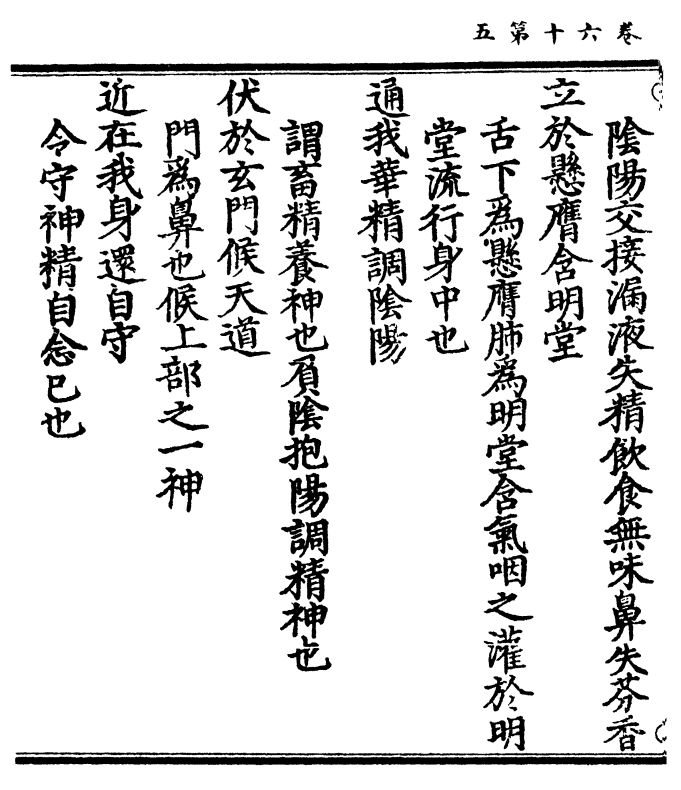 卷六十第五
陰陽交接漏液失精飲食無味鼻失芬香
立於懸膺含明堂
舌下爲懸膺肺爲明堂含氣咽之灌於明
堂流行身中也
通我華精調陰陽
謂畜精養神也負陰抱陽調精神也
伏於玄門候天道
門爲鼻也候上部之一神
近在我身還自守
令守神精自念已也